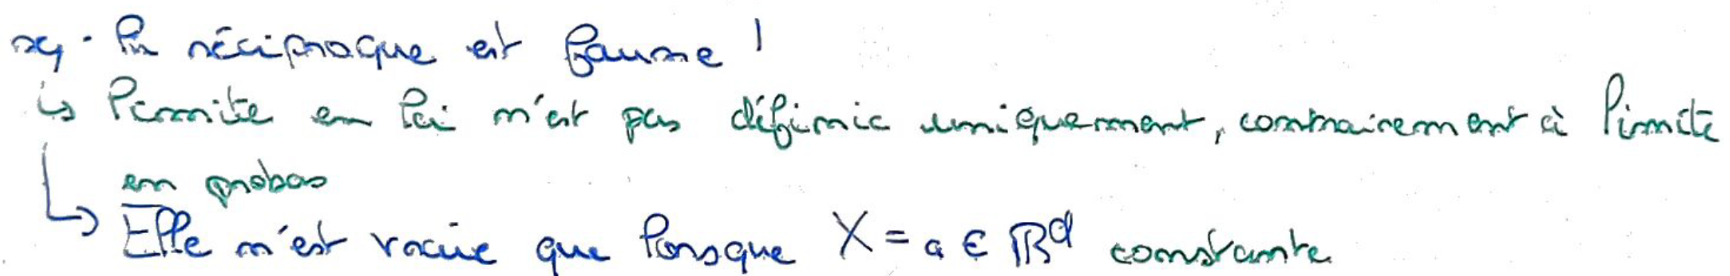 rq · la réciproque est fausse !
↳ limite en loi n'est pas définie uniquement, contrairement à limite
en probas
↳ Elle n'est vraie que lorsque X = a ∈ ℝᵈ constante